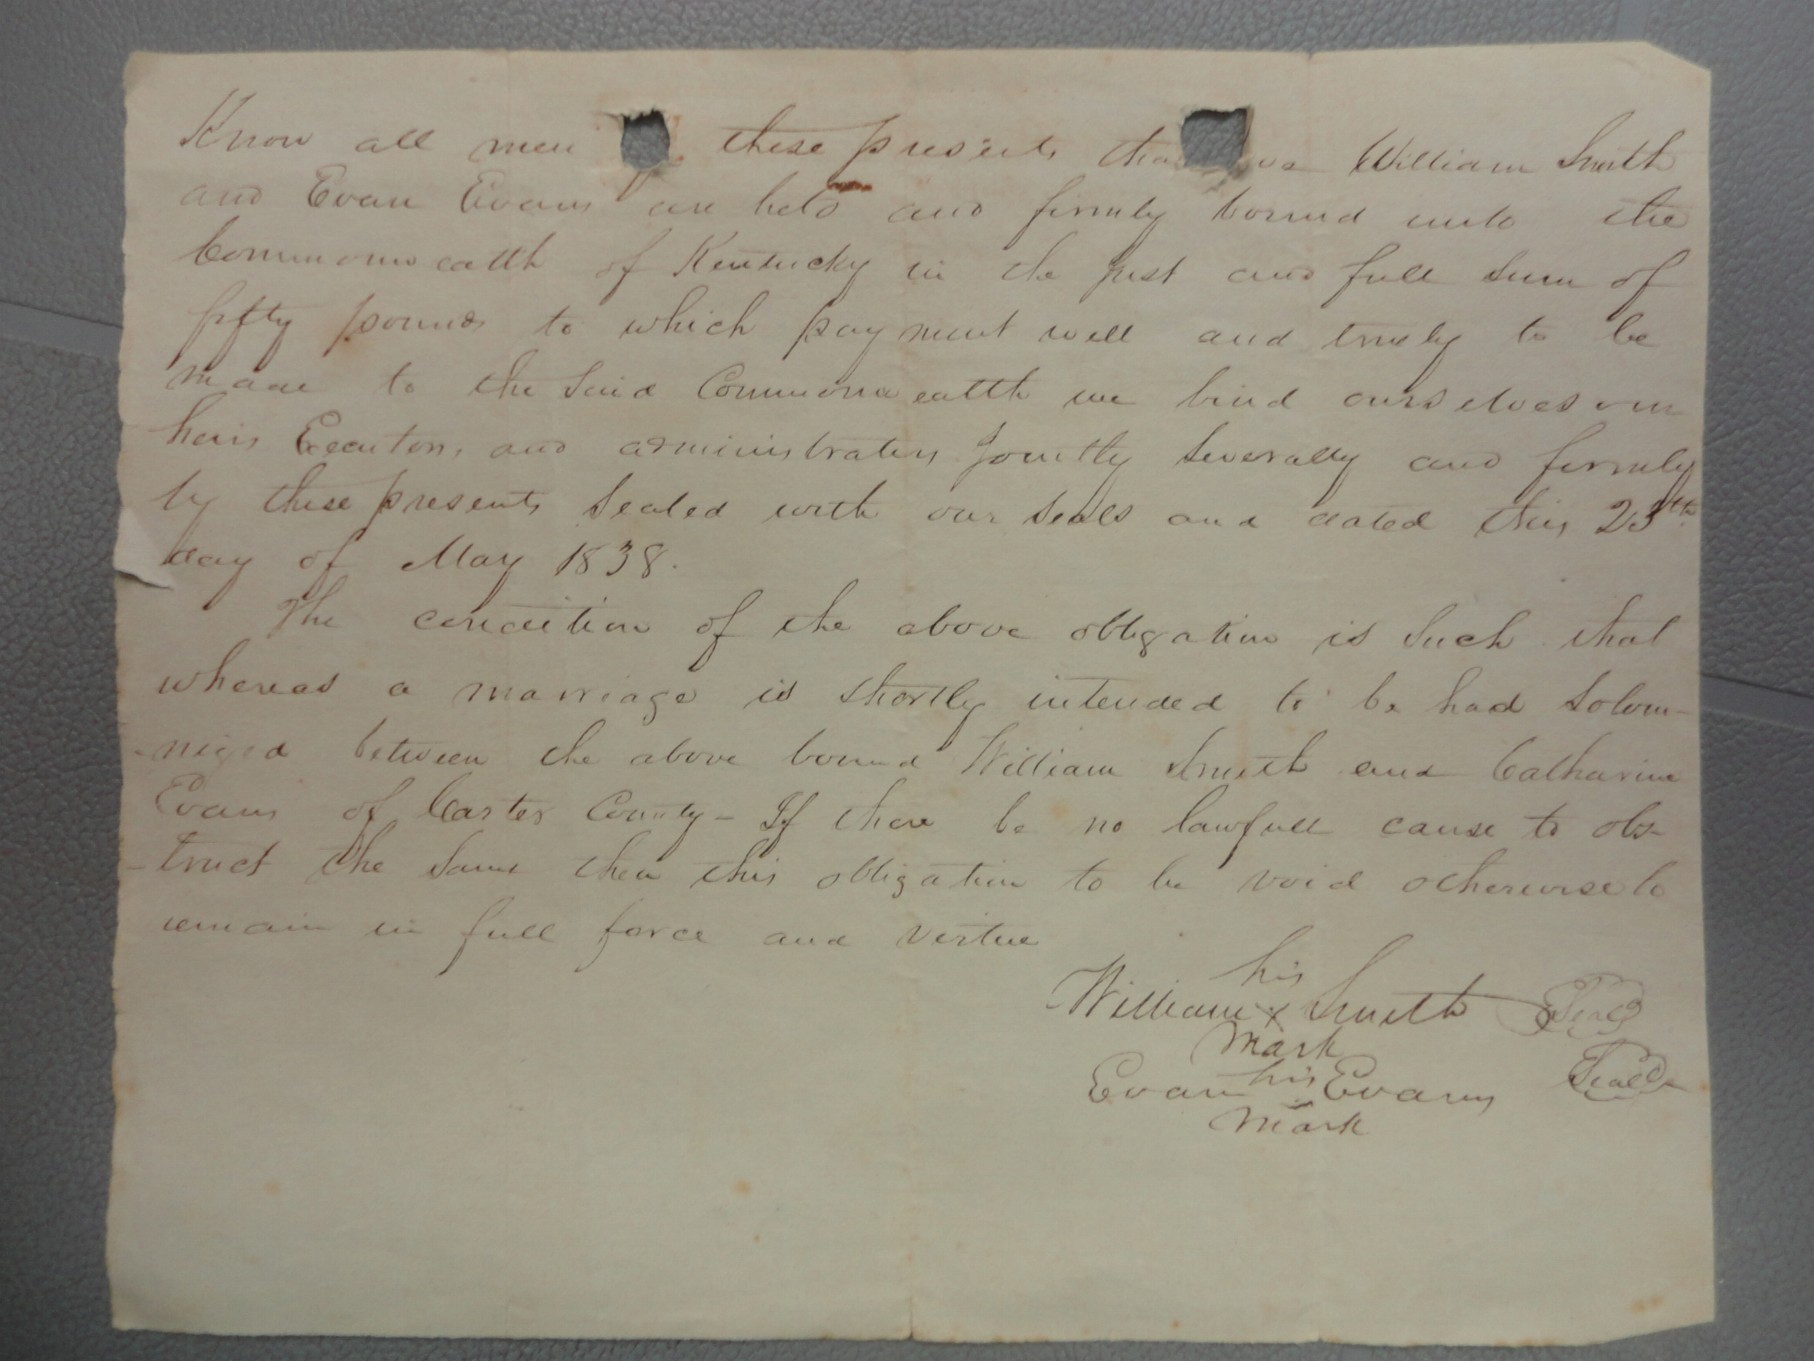 Know all men these presents tha we William Smith
and Evan Evans are held and firmly bound unto the
Commonwealth of Kentucky in the just and full sum of
fifty pounds to which payment well and truely to be
made to the said Commonwealth we bind ourselves our
heirs Executors, and administrators Jointly severally and firmly
by these presents sealed with our seals and dated this
day of May 1838.
The condition of the above obligation is such that
whereas a marriage is shortly intended to be had solem-
-nized between the above bound William Smith and Catharine
Evans of Carter County - If there be no lawfull cause to obs-
-truct the same then this obligation to be void otherwise to
remain in full force and virtue
his
William x Smith Seal
mark
Evan his Evans Seal
mark